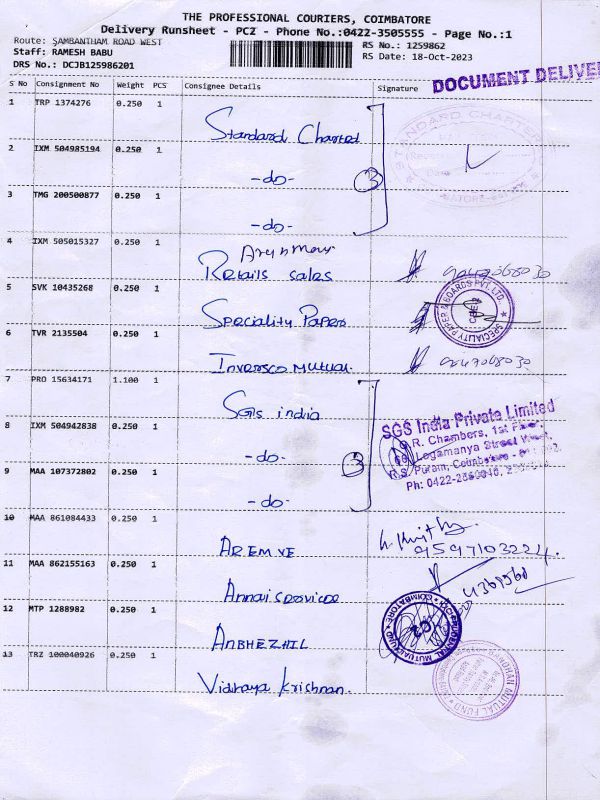 THE PROFESSIONAL COURIERS, COIMBATORE
Delivery Runsheet - PCZ - Phone No.:0422-3505555 - Page No.:1
Route: SAMBANTHAM ROAD WEST
RS No.: 1259862
Staff: RAMESH BABU
RS Date: 18-Oct-2023
DRS No.: DCJB125986201
DOCUMENT DELIVE
S No Consignment No Weight PCS Consignee Details Signature
1 TRP 1374276 0.250 1 Standard Charted
STANDARD CHARTER
2 IXM 504985194 0.250 1 -do- 3
3 TMG 200500877 0.250 1 -do-
4 IXM 505015327 0.250 1 Retails sales
5 SVK 10435268 0.250 1 Speciality Papers
SPECIALITY PAPER & BOARDS PVT. LTD.
6 TVR 2135504 0.250 1 Invessco Mutual.
7 PRO 15634171 1.100 1 SGS india
SGS India Private Limited
R. Chambers, 1st Floor,
Logamanya Street West,
R.S. Puram, Coimbatore
Ph: 0422-
8 IXM 504942838 0.250 1 -do- 3
9 MAA 107372802 0.250 1 -do-
10 MAA 861084433 0.250 1 AREMVE
9597103224.
11 MAA 862155163 0.250 1 Annai service
12 MTP 1288982 0.250 1 ANBHEZHIL
COIMBATORE
13 TRZ 100040926 0.250 1 Vidhaya Krishnan.
MUTUAL FUND